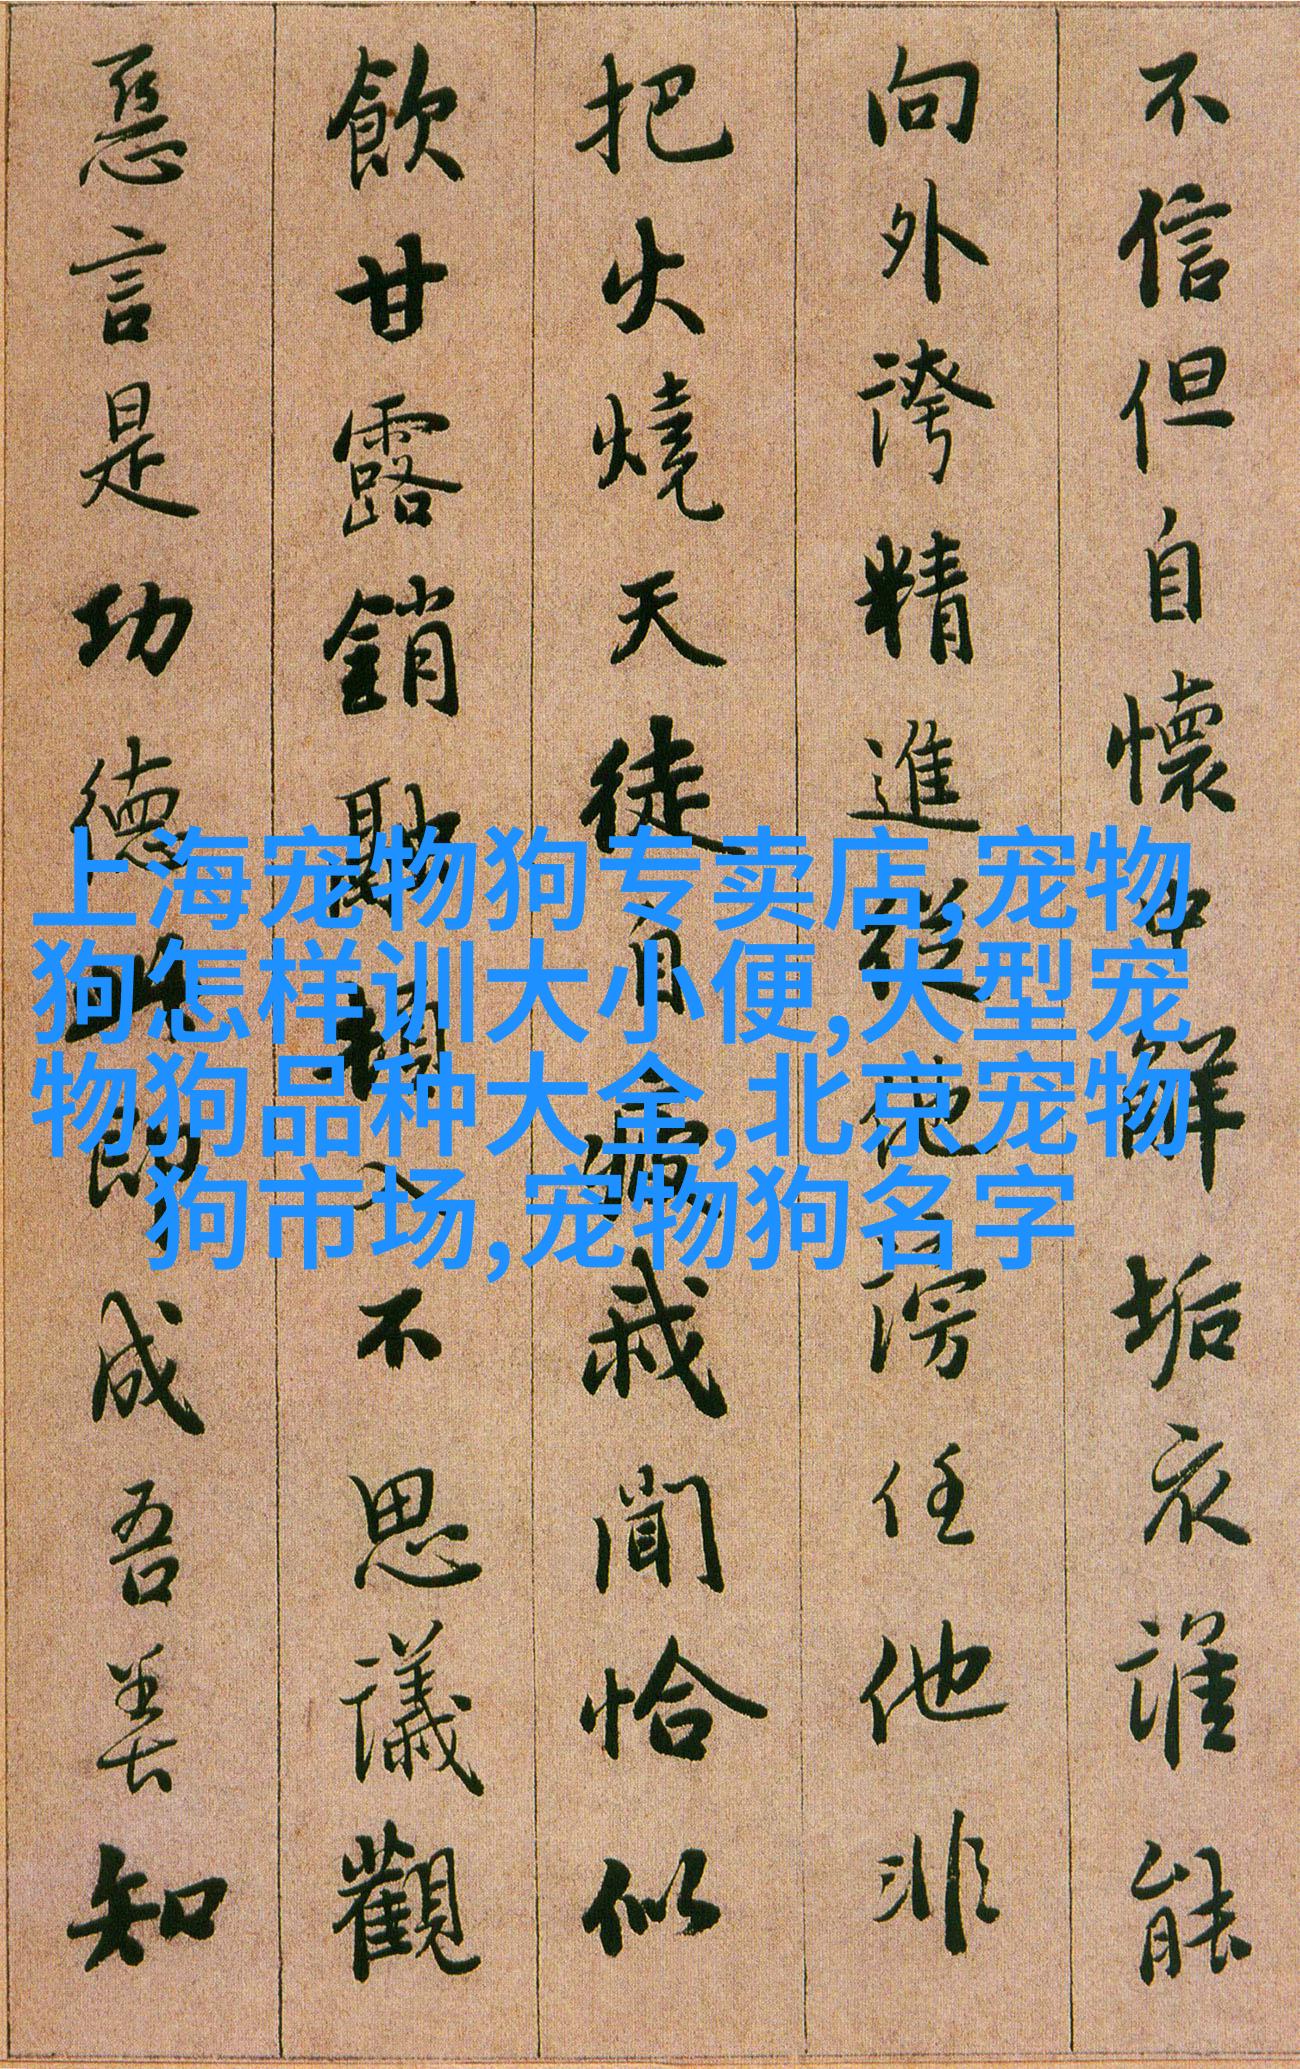 不信但自懷中解垢衣誰能
向外誇精進從他謗任他非
把火燒天徒自疲我聞恰似
飲甘露銷融頓入不思議觀
惡言是功德此即成吾善知
上海宠物狗专卖店,宠物
狗怎样训大小便,大型宠
物狗品种大全,北京宠物
狗市场,宠物狗名字